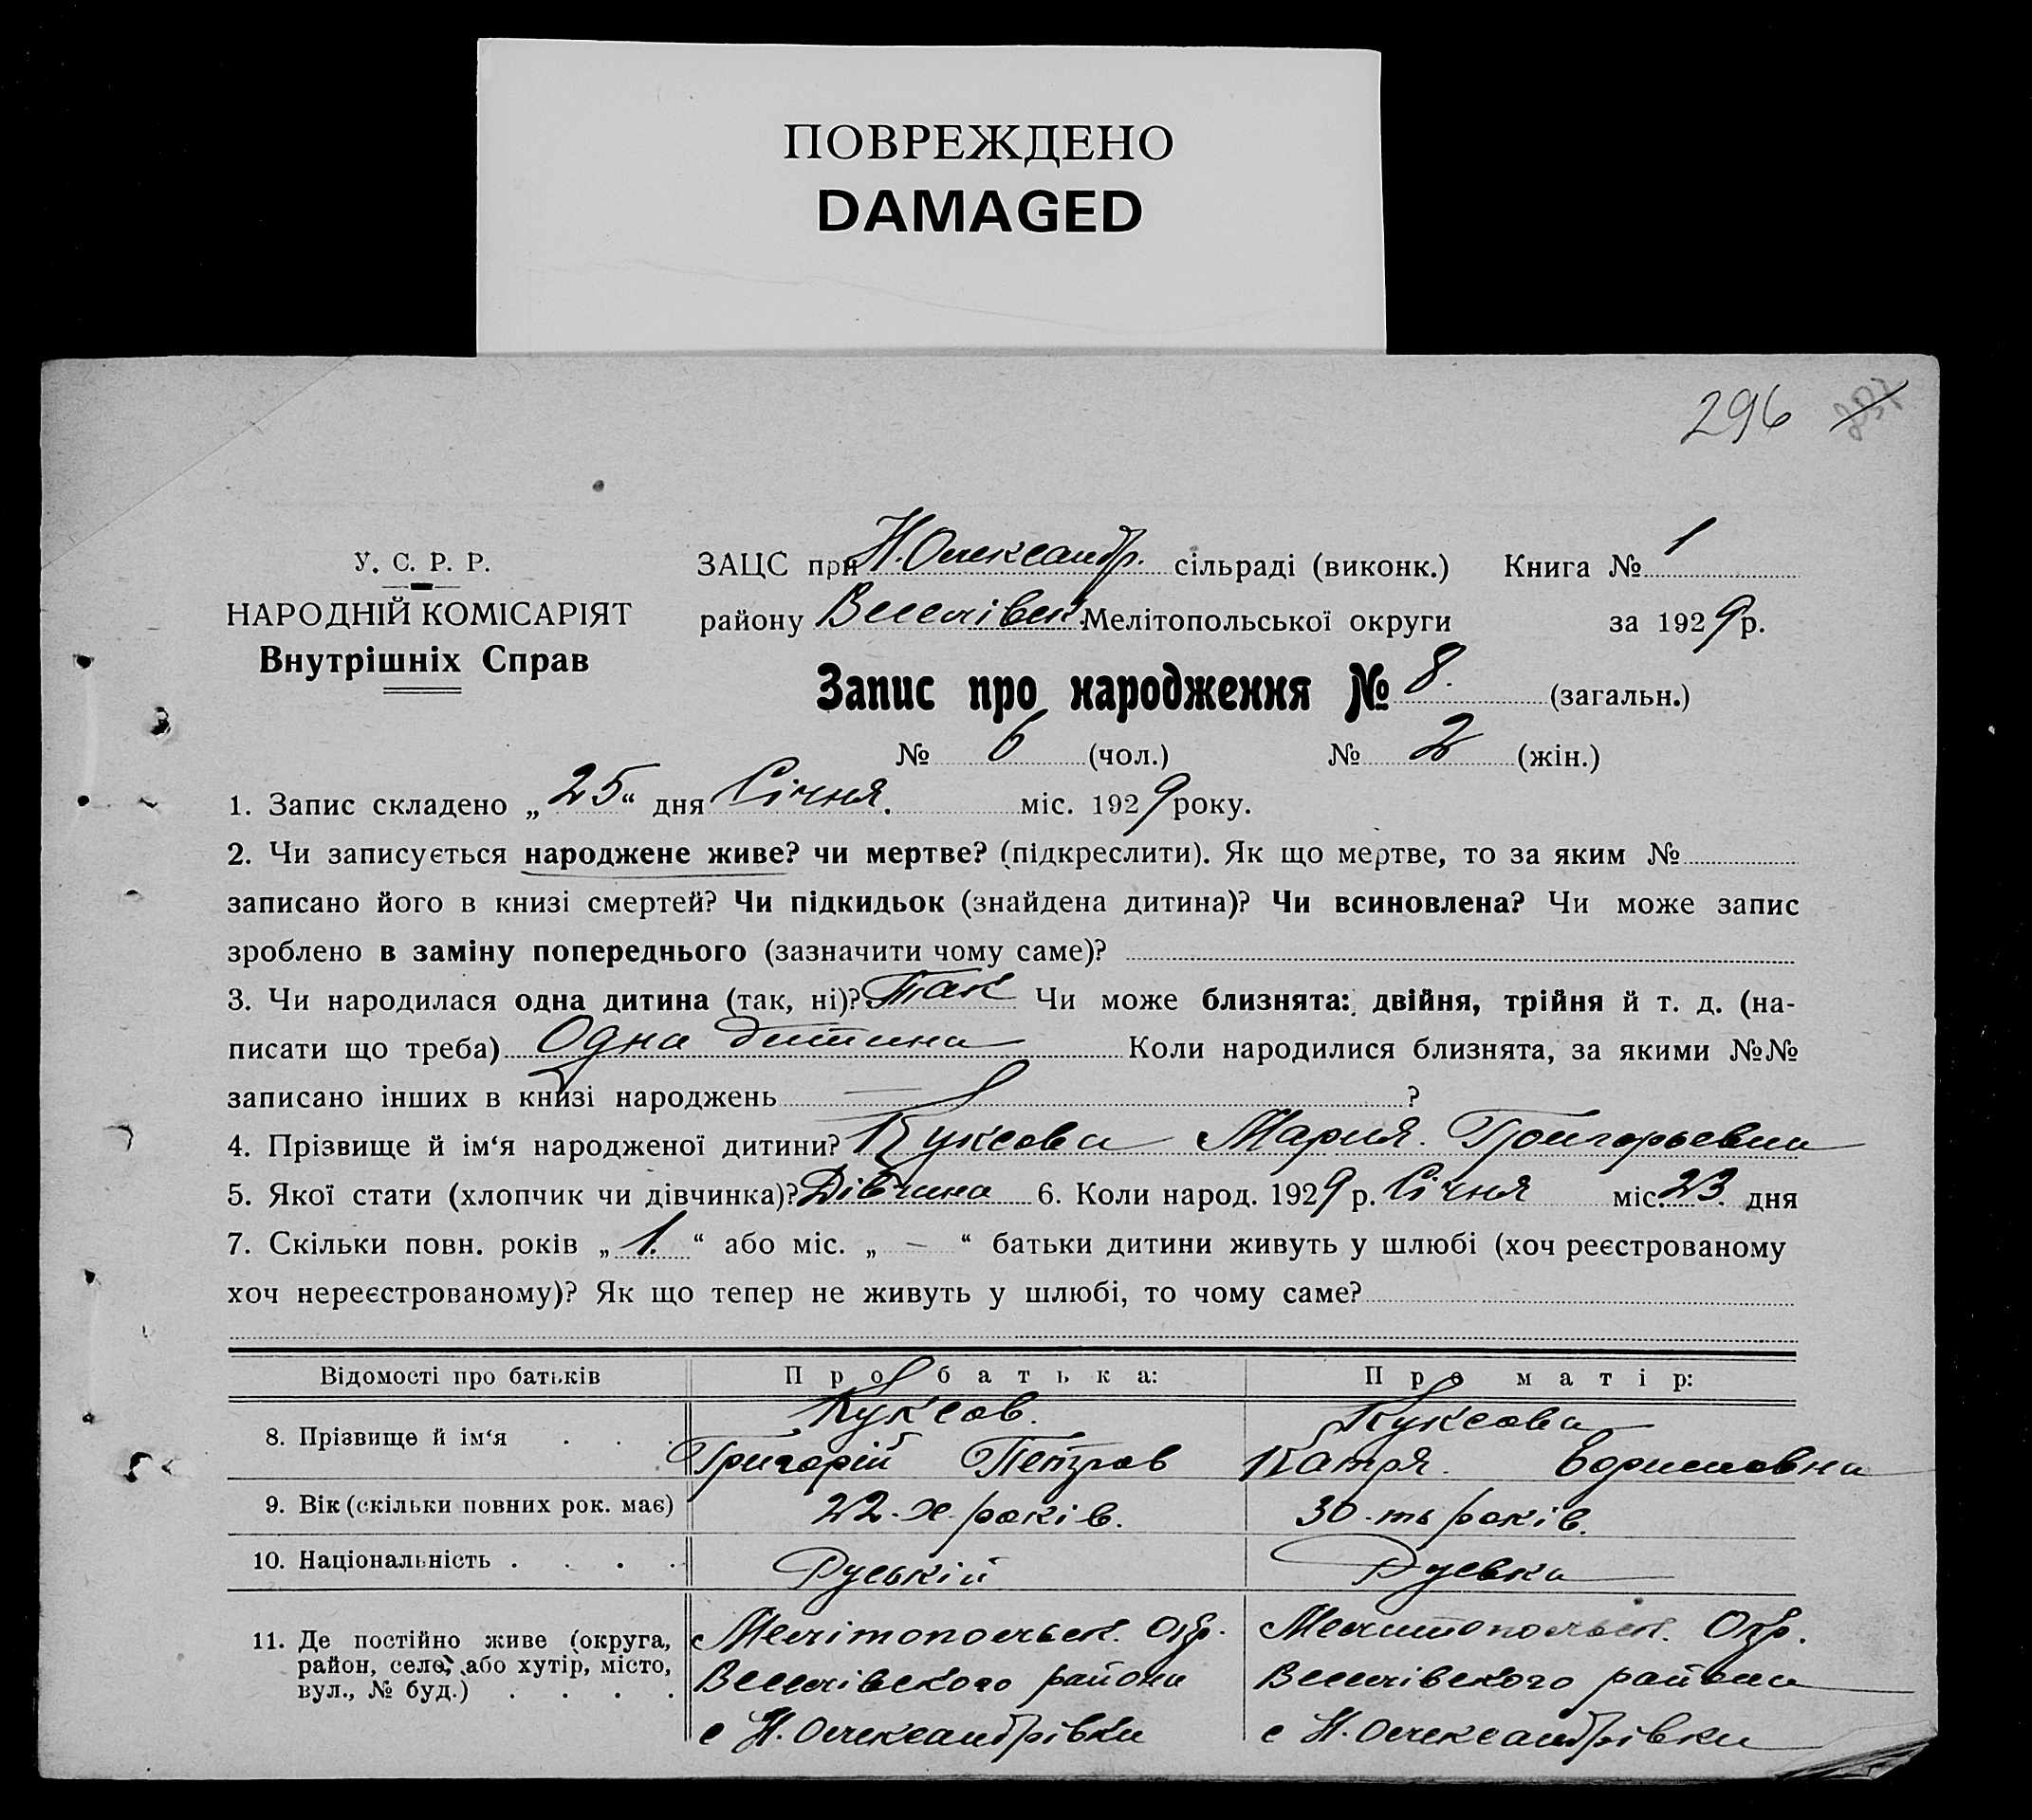 ПОВРЕЖДЕНО
DAMAGED
296 237
У. С. Р. Р.
НАРОДНІЙ КОМІСАРІЯТ
Внутрішніх Справ
ЗАЦС при Н. Олександр. сільраді (виконк.) Книга № 1
району Веселівськ. Мелітопольської округи за 1929 р.
Запис про народження № 8. (загальн.)
№ 6 (чол.) № 2 (жін.)
1. Запис складено „25“ дня Січня. міс. 1929 року.
2. Чи записується народжене живе? чи мертве? (підкреслити). Як що мертве, то за яким №
записано його в книзі смертей? Чи підкидьок (знайдена дитина)? Чи всиновлена? Чи може запис
зроблено в заміну попереднього (зазначити чому саме)?
3. Чи народилася одна дитина (так, ні)? Так Чи може близнята: двійня, трійня й т. д. (на-
писати що треба) Одна дитина Коли народилися близнята, за якими №№
записано інших в книзі народжень — ?
4. Прізвище й ім‘я народженої дитини? Куксова Мария. Григорьевна
5. Якої стати (хлопчик чи дівчинка)? Дівчина 6. Коли народ. 1929 р. Січня міс. 23 дня
7. Скільки повн. років „1.“ або міс. „ — “ батьки дитини живуть у шлюбі (хоч реєстрованому
хоч нереєстрованому)? Як що тепер не живуть у шлюбі, то чому саме?
Відомості про батьків Про батька: Про матір:
8. Прізвище й ім‘я . . . Куксов. Григорій Петров Куксова Катря. Ефимовна
9. Вік (скільки повних рок. має) 22-х років. 30-ть років.
10. Національність . . . . Руський Руська
11. Де постійно живе (округа, район, село, або хутір, місто, вул., № буд.) . . . .
Мелітопольськ. Окр. Мелитопольск. Окр.
Веселівского района Веселівского района
с Н. Олександрівки с Н. Олександрівки